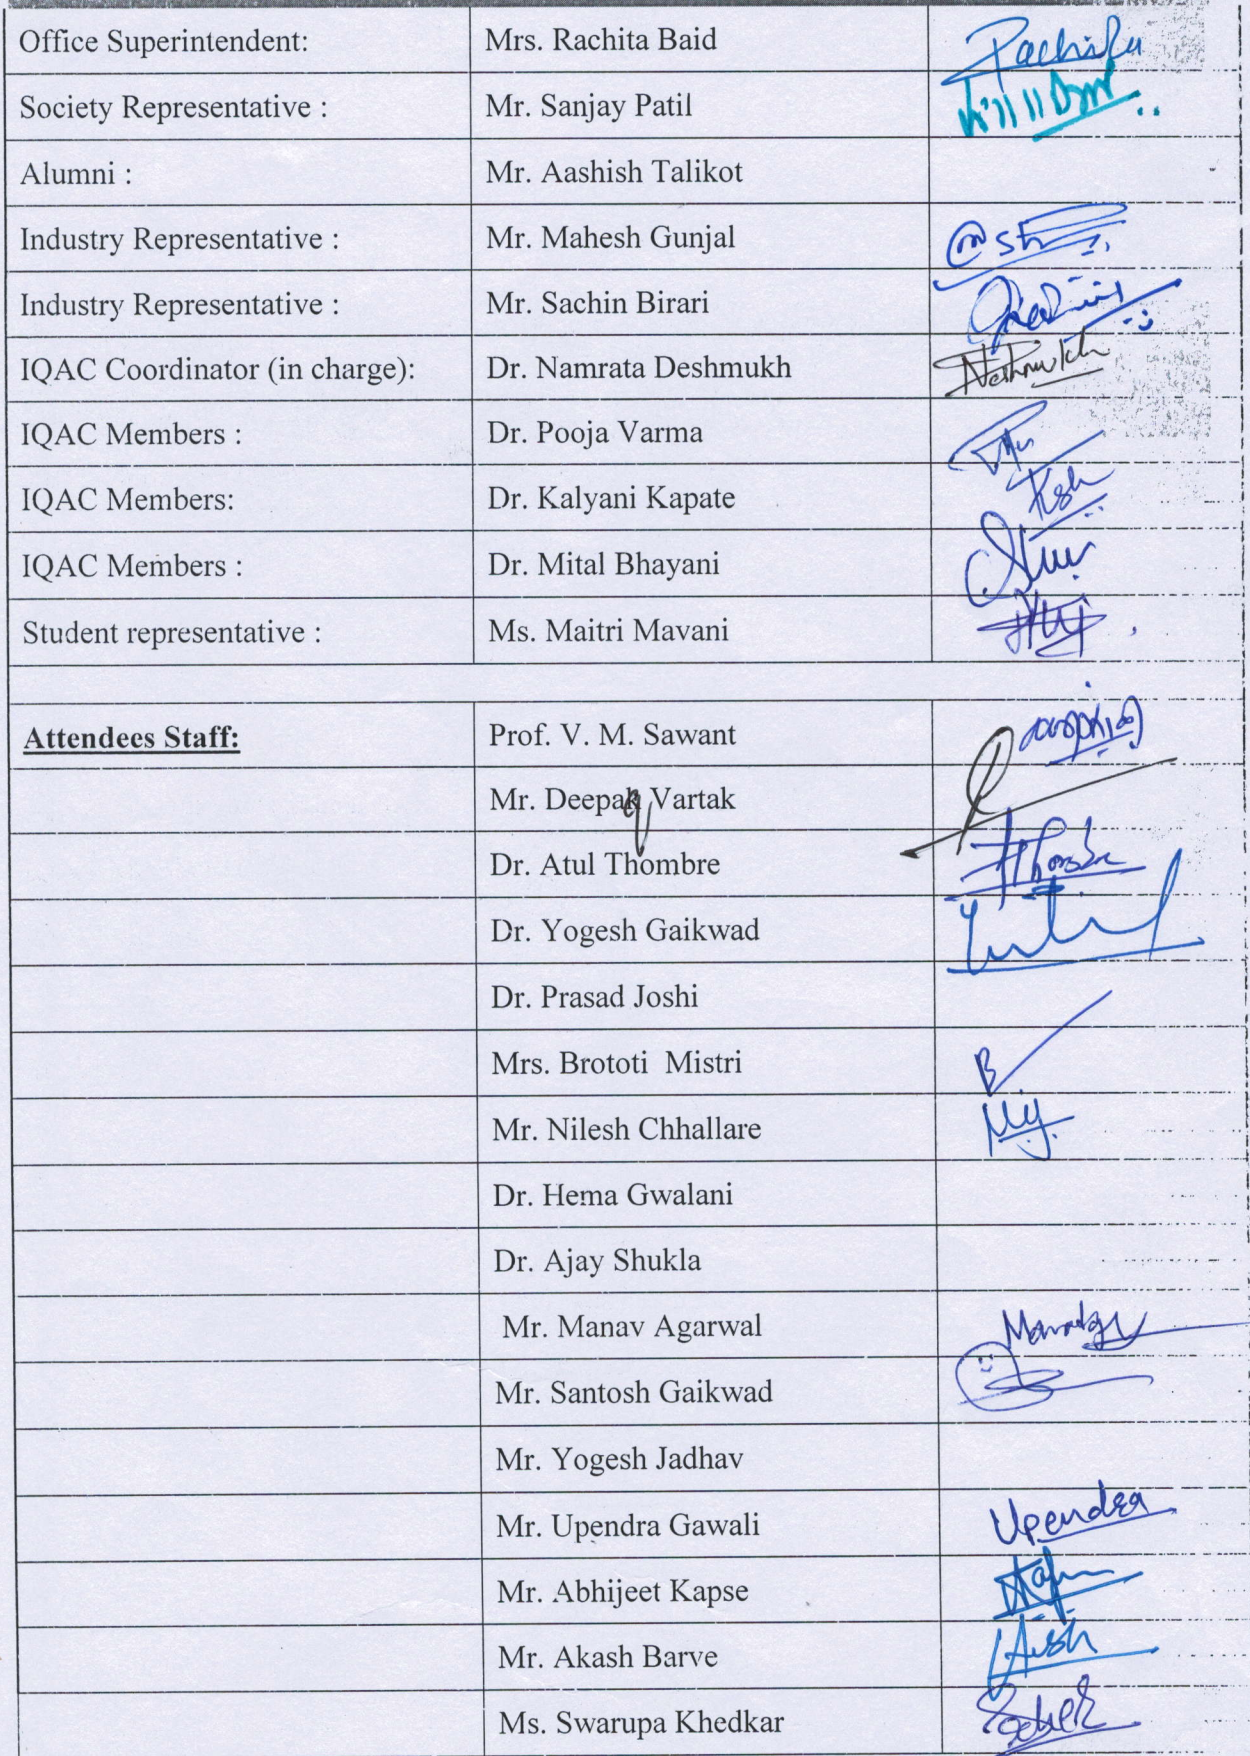 Office Superintendent: Mrs. Rachita Baid Rachita
Society Representative : Mr. Sanjay Patil
Alumni : Mr. Aashish Talikot
Industry Representative : Mr. Mahesh Gunjal
Industry Representative : Mr. Sachin Birari
IQAC Coordinator (in charge): Dr. Namrata Deshmukh
IQAC Members : Dr. Pooja Varma
IQAC Members: Dr. Kalyani Kapate
IQAC Members : Dr. Mital Bhayani
Student representative : Ms. Maitri Mavani
Attendees Staff: Prof. V. M. Sawant
Mr. Deepak Vartak
Dr. Atul Thombre
Dr. Yogesh Gaikwad
Dr. Prasad Joshi
Mrs. Brototi Mistri
Mr. Nilesh Chhallare
Dr. Hema Gwalani
Dr. Ajay Shukla
Mr. Manav Agarwal
Mr. Santosh Gaikwad
Mr. Yogesh Jadhav
Mr. Upendra Gawali Upendra
Mr. Abhijeet Kapse
Mr. Akash Barve
Ms. Swarupa Khedkar